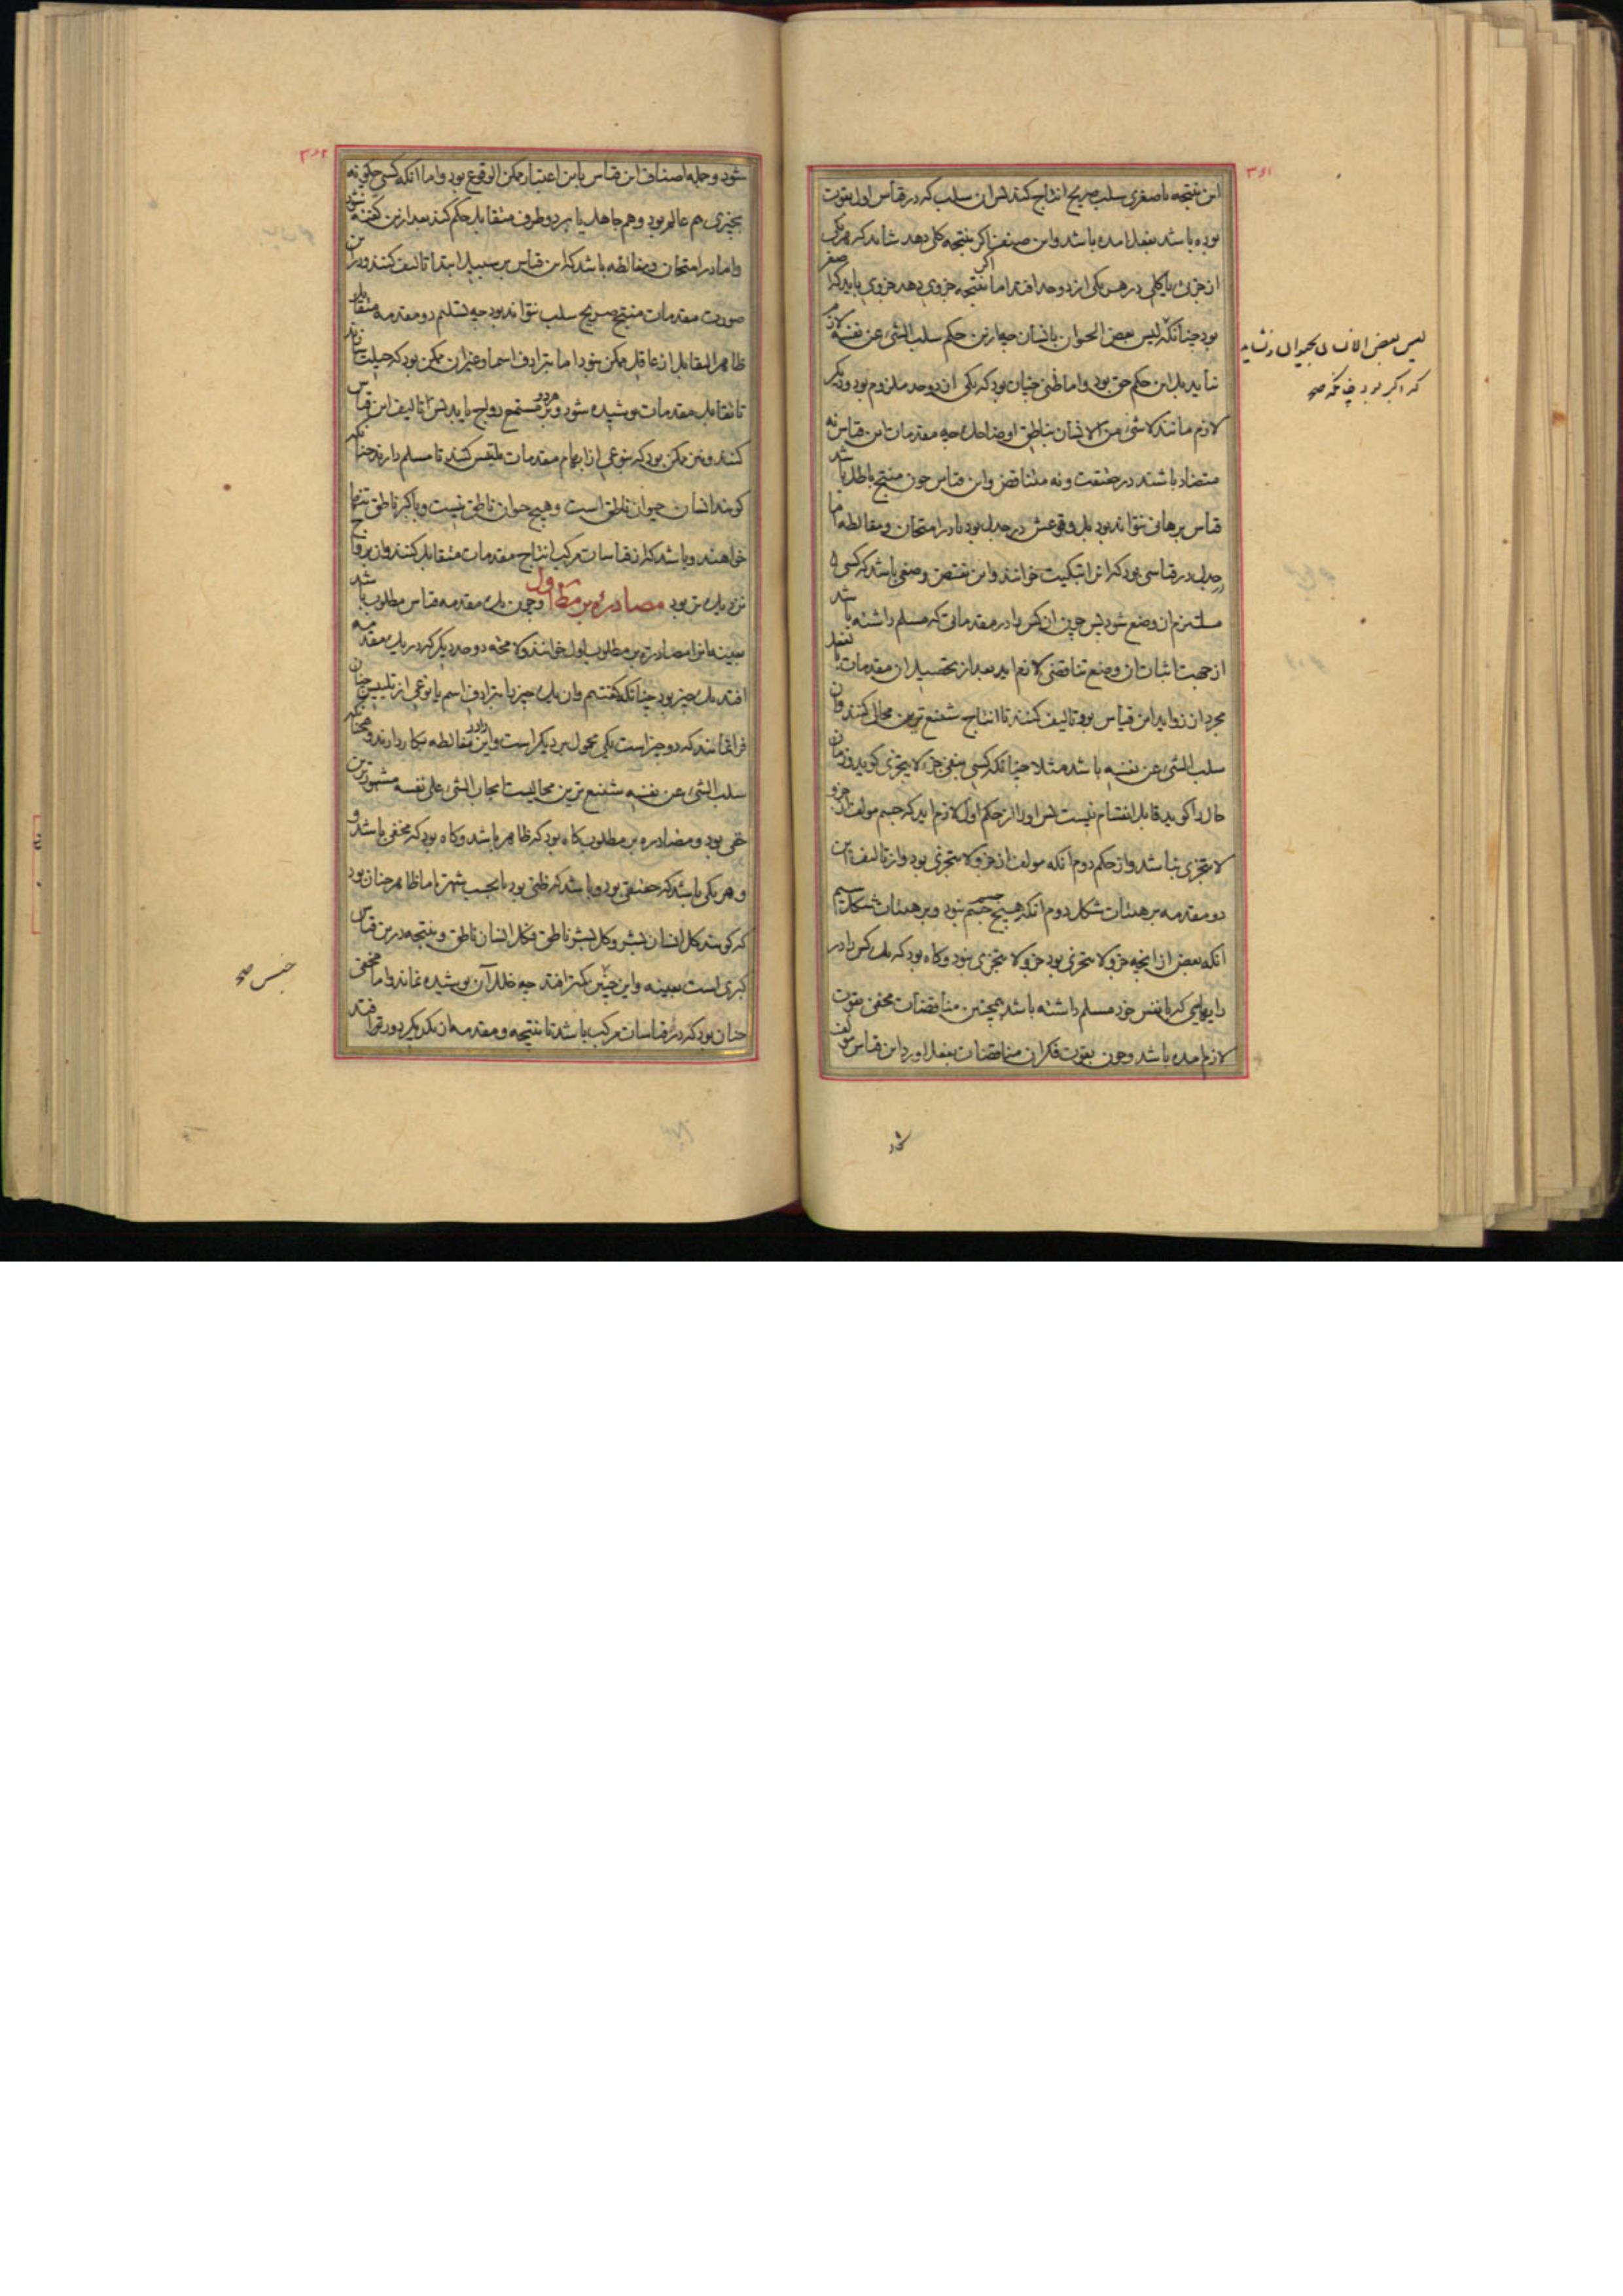 ۳۶۱
این نتیجه با صغری سلب صریح انتاج کند پس ان سلب که در قیاس اول بقوت
بوده باشد بفعل امده باشد واین صنف اکر نتیجه کلی دهد شاید که هریکی
از جزئی یا کلی در هر یکی از دو حد افتد اما اکر نتیجه جزوی دهد جزوی باید که اصغر
بود چنانکه لیس بعض الحیوان بانسان چه ازین حکم سلب الشیء عن نفسه لازم
نیاید بل این حکم حق بود واما ظنی چنان بود که یکی از دو حد ملزوم بود ودیکر
لازم مانند لاشیء من الانسان بناطق او ضاحک چه مقدمات این قیاس نه
متضاد باشند در حقیقت ونه متناقض واین قیاس چون منتج باطل باشد
قیاس برهانی نتواند بود بل وقوعش در جدل بود یا در امتحان ومغالطه اما
در جدل در قیاسی بود که انرا تبکیت خوانند واین نقیض وضعی باشد که کسی
ملتزم ان وضع شود پس چون ان کس را در مقدماتی که مسلم داشته باشد
از جهت اثبات ان وضع تناقضی لازم اید بعد از تحصیل ان مقدمات بفعل
مجرد ان زواید این قیاس برو تالیف کنند تا انتاج شنیع ترین محالی کنند وان
سلب الشیء عن نفسه باشد مثلا چنانکه کسی بنفی جزء لایتجزی کوید وزمان
حال را کوید قابل انقسام نیست پس اورا از حکم اول لازم اید که جسم مولف از جزو
لایتجزی نباشد واز حکم دوم انکه مولف از جزو لایتجزی بود واز تالیف این
دو مقدمه بر هیئات شکل دوم انکه هیچ جسم جسم نبود وبر هیئات شکل سیم
انکه بعض از انچه جزو لایتجزی بود جزو لایتجزی نبود وکاه بود که یک کس را در
رایهایی که با نفس خود مسلم داشته باشد همچنین مناقضات مخفی بقوت
لازم امده باشد وچون بقوت فکر ان مناقضات بفعل اورد این قیاس مولف
لیس بعض الانسان بحیوان نشاید
که اکبر بود چنانکه صح
شود
۳۶۲
شود وجمله اصناف این قیاس باین اعتبار ممکن الوقوع بود واما انکه کسی چکونه
بچیزی هم عالم بود وهم جاهل یا بر دو طرف متقابل حکم کند بعد ازین کفته شود
واما در امتحان ومغالطه باشد که این قیاس بر سبیل ابتدا تالیف کنند ودرین
صورت مقدمات منتج صریح سلب نتواند بود چه تسلیم دو مقدمه متقابل
ظاهر التقابل از عاقل ممکن نبود اما بترادف اسما وغیر ان ممکن بود که حیلت سازند
تا تقابل مقدمات پوشیده شود وبر مستمع رواج یابد پس تالیف این قیاس
کنند ونیز ممکن بود که بنوعی از ابهام مقدمات ملتبس کنند تا مسلم دارند چنانکه
کویند انسان حیوان ناطق است وهیچ حیوان ناطق نیست وباکبر ناطق تنها
خواهند وباشد که از قیاسات مرکب انتاج مقدمات متقابل کنند وان برواج
نزدیکتر بود مصادره بر مط اول وچون یک مقدمه قیاس مطلوب باشد
بعینه انرا مصادره بر مطلوب اول خوانند ولا محاله دو حد دیکر که در یک مقدمه
افتد یک چیز بود چنانکه کفتیم وان یک چیز یا بترادف اسم یا نوعی از تلبیس چنان
فرا نمایند که دو چیز است یکی محمول بر دیکر است واین در مغالطه بکار دارند وهمچنانکه
سلب الشیء عن نفسه شنیع ترین محالیست ایجاب الشیء علی نفسه مشهورترین
حقی بود ومصادره بر مطلوب کاه بود که ظاهر باشد وکاه بود که مخفی باشد و
وهر یکی باشد که حقیقی بود وباشد که ظنی بود یا بحسب شهرت اما ظاهر چنان بود
که کویند کل انسان بشر وکل بشر ناطق فکل انسان ناطق ونتیجه درین قیاس
کبری است بعینه واین چنین کمتر افتد چه خلل آن پوشیده نماند واما مخفی
چنان بود که در قیاسات مرکب باشد تا نتیجه ومقدمه از یکدیکر دورتر افتد
جنس صح